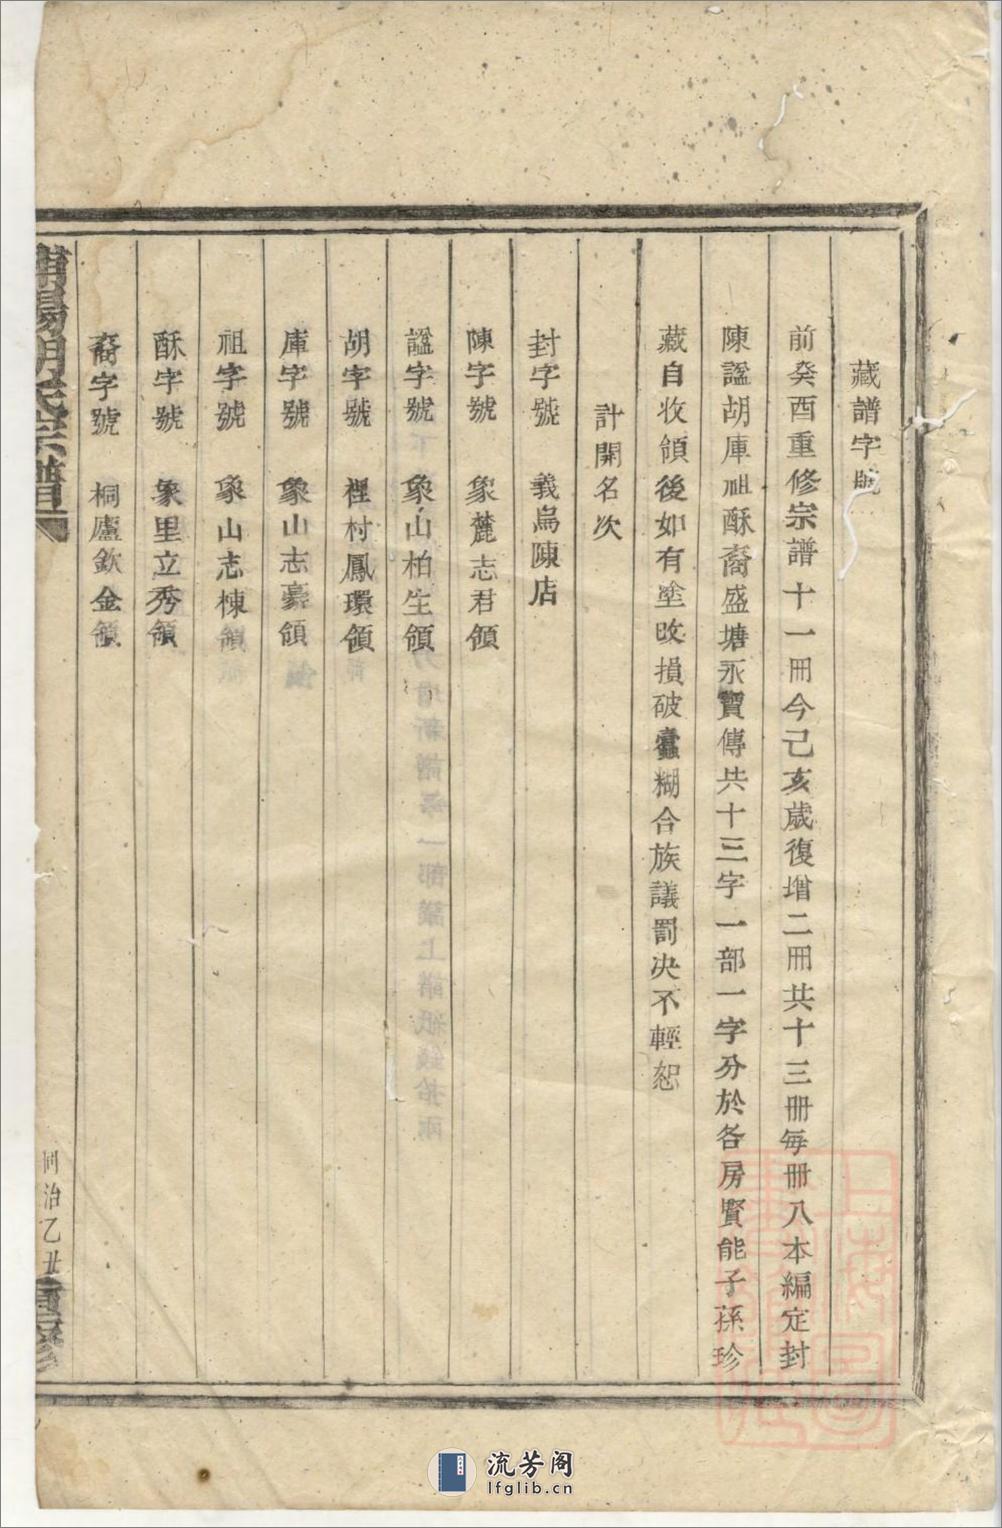 藏譜字號
前癸酉重修宗譜十一冊今己亥歲復增二冊共十三冊每冊八本編定封
陳謐胡庫祖酥裔盛塘永寶傳共十三字一部一字分於各房賢能子孫珍
藏自收領後如有塗改損破蠹糊合族議罰決不輕恕
計開名次
封字號 義烏陳店
陳字號 象麓志君領
謐字號 象山柏生領
胡字號 裡村鳳環領
庫字號 象山志豪領
祖字號 象山志棟領
酥字號 象里立秀領
裔字號 桐廬欽金領
浦陽胡氏宗譜
同治乙丑重修
流芳阁
lfglib.cn